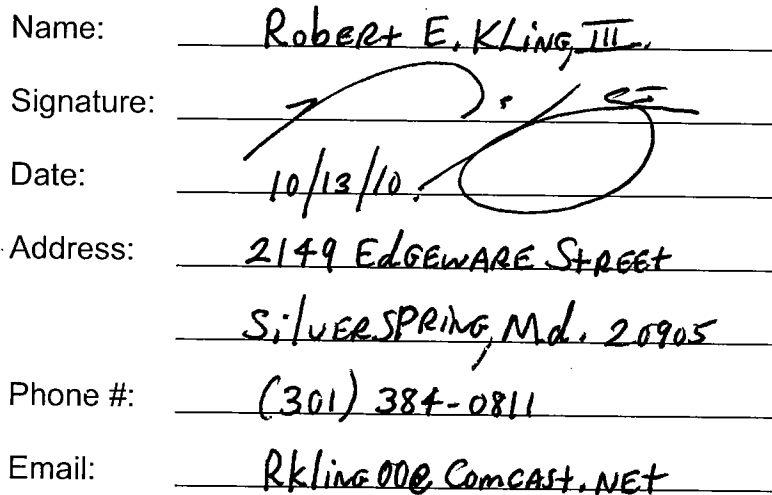 Name: Robert E. Kling, III.
Signature:
Date: 10/13/10.
Address: 2149 Edgeware Street
Silver Spring, Md. 20905
Phone #: (301) 384-0811
Email: Rkling00@Comcast.net